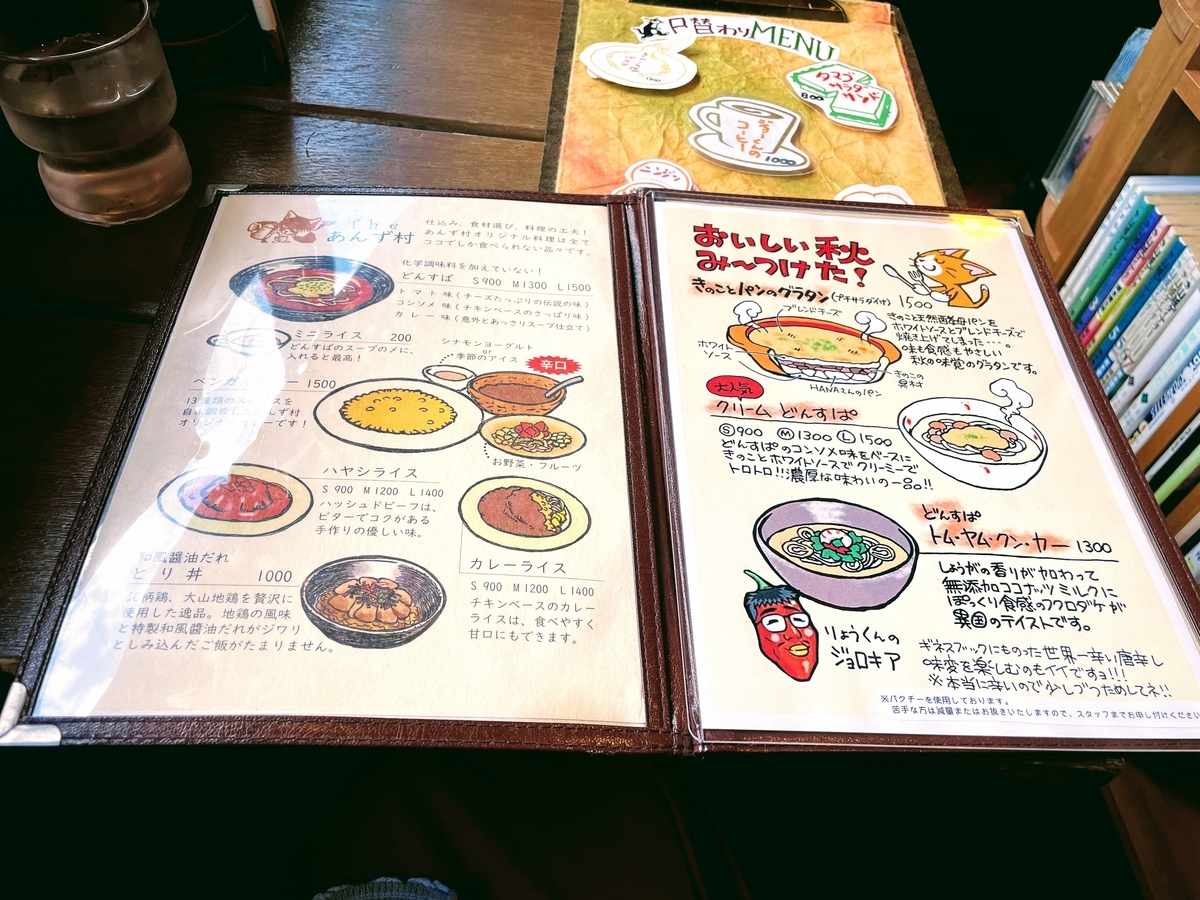 日替わりMENU
タマゴ
サラダ
サンド
800
ジョーくんの
コーヒー
1000
ニンジン
The
あんず村
仕込み、食材選び、料理の工夫!
あんず村オリジナル料理は全て
ココでしか食べられない品々です。
化学調味料を加えていない!
どんすぱ S900 M1300 L1500
トマト味(チーズたっぷりの伝説の味)
コンソメ味(チキンベースのさっぱり味)
カレー味(意外とあっさりスープ仕立て)
ミニライス 200
どんすぱのスープの〆に、
入れると最高!
シナモンヨーグルト
or
季節のアイス
辛口
1500
13種類のスパイスを
オリジナルカレーです!
お野菜・フルーツ
ハヤシライス
S 900 M1200 L1400
ハッシュドビーフは、
ビターでコクがある
手作りの優しい味。
カレーライス
S 900 M1200 L1400
チキンベースのカレー
ライスは、食べやすく
甘口にもできます。
和風醤油だれ
とり丼 1000
銘柄鶏、大山地鶏を贅沢に
使用した逸品。地鶏の風味
と特製和風醤油だれがジワリ
としみ込んだご飯がたまりません。
おいしい秋
み〜つけた!
きのことパンのグラタン(プチサラダイナ) 1500
ブレンドチーズ
ホワイト
ソース
きのこの
具材
HANAさんのパン
きのこと天然酵母パンを
ホワイトソースとブレンドチーズで
焼き上げてしまった・・・。
味も食感もやさしい
秋の味覚のグラタンです。
大人気
クリームどんすぱ
Ⓢ900 Ⓜ1300 Ⓛ1500
どんすぱのコンソメ味をベースに
きのことホワイトソースでクリーミーで
トロトロ!!!濃厚な味わいの一品!!
どんすぱ
トム・ヤム・クン・カー 1300
しょうがの香りが加わって
無添加ココナッツミルクに
ぽっくり食感のフクロダケが
異国のテイストです。
りょうくんの
ジョロキア
ギネスブックにものった世界一辛い唐辛し
味変を楽しむのもイイですョ!!!
※本当に辛いので少しづつためしてネ!!
※パクチーを使用しております。
苦手な方は減量またはお抜きいたしますので、スタッフまでお申し付けください